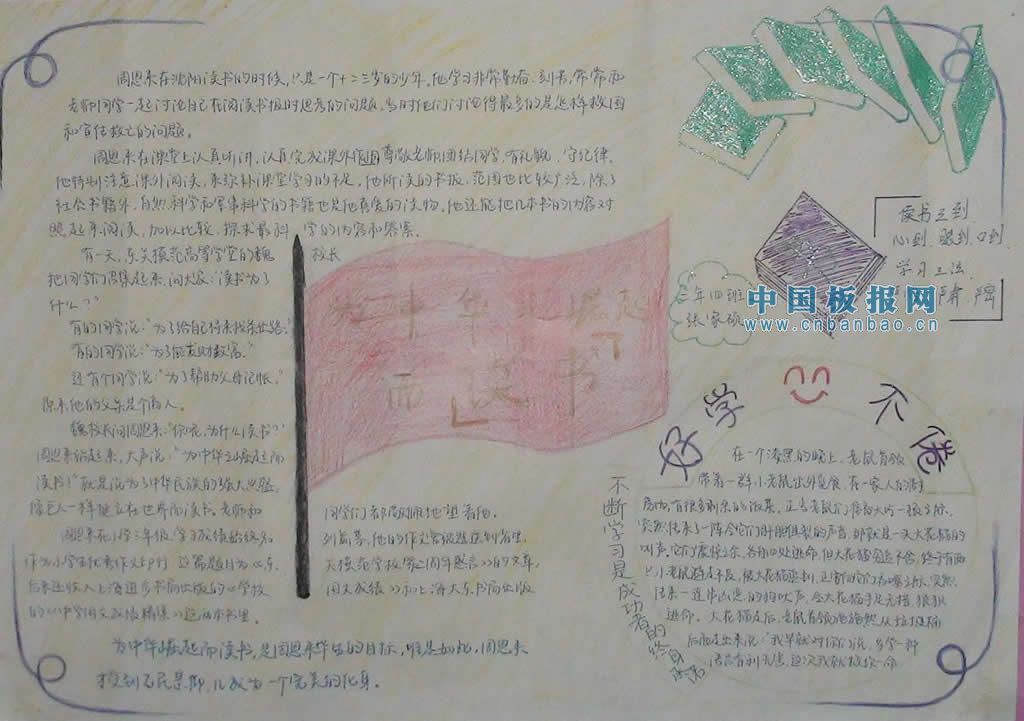 周恩来在沈阳读书的时候,只是一个十二三岁的少年。他学习非常勤奋、刻苦,常常和
老师同学一起讨论自己在阅读书报时思考的问题。当时他们讨论得最多的是怎样救国
和宣传救亡的问题。
周恩来在课堂上认真听讲,认真完成课外作业,尊敬老师团结同学,有礼貌、守纪律。
他特别注意课外阅读,来弥补课堂学习的不足。他所读的书报,范围也比较广泛,除了
社会书籍外,自然科学和军事科学的书籍也是他喜爱的读物。他还能把几本书的内容对
照起来阅读,加以比较,探求各科学的内容和答案。
有一天,东关模范高等学堂的魏校长
把同学们召集起来,问大家:“读书为了
什么?”
有的同学说:“为了给自己将来找条出路。”
有的同学说:“为了能发财致富。”
还有个同学说:“为了帮助父母记帐。”
原来他的父亲是个商人。
魏校长问周恩来:“你呢,为什么读书?”
周恩来站起来,大声说:“为中华之崛起而
读书!”就是说为了中华民族的强大
像巨人一样屹立在世界而读书。老师和
同学们都敬佩地望着他。
周恩来在小学三年级,学习成绩始终名
列前茅,他的作文常被选送到省里,
作为小学生优秀作文
后来还收入上海进步书局出版的《学校
国文成绩》和上海大东书局出版
的《中学国文成绩精华》这两本书里。
为中华崛起而读书,是周恩来毕生的目标,
一个完美的化身。
为中华之崛起
而读书
读书三到
心到、眼到、口到
学习三法
二年四班
张家硕
中国板报网
www.cnbanbao.cn
好学不倦
在一个漆黑的晚上,老鼠首领
带着一群小老鼠出外觅食,在一家人的厨
房内,有很多剩余的饭菜。正当老鼠们准备大吃一顿之际,
突然传来了一阵令它们肝胆俱裂的声音,那就是一头大花猫的
叫声。它们震惊之余,各自四处逃命,但大花猫穷追不舍,终于有两
只小老鼠走不及,被大花猫追到,正当它们要被吞噬之际,突然
传来一连串凶恶的狗吠声,令大花猫手足无措,狼狈
逃命。大花猫走后,老鼠首领施施然从垃圾桶
后面走出来说:“我早就对你们说,多学一种
语言有利无害,这次我就救你一命
不断学习是成功者的终身承诺